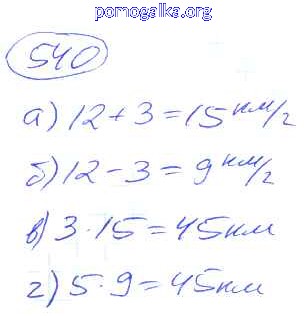 pomogalka.org
540
а) 12 + 3 = 15 км/г
б) 12 - 3 = 9 км/г
в) 3 · 15 = 45 км
г) 5 · 9 = 45 км